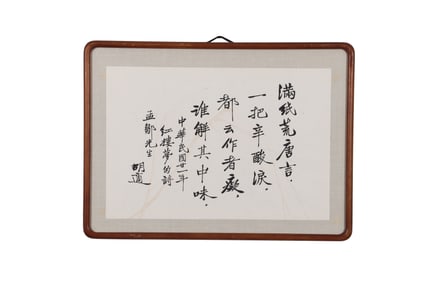 滿紙荒唐言．
一把辛酸淚．
都云作者癡．
谁解其中味．
中華民國廿一年
紅樓夢的詩
孟鄒先生
胡適